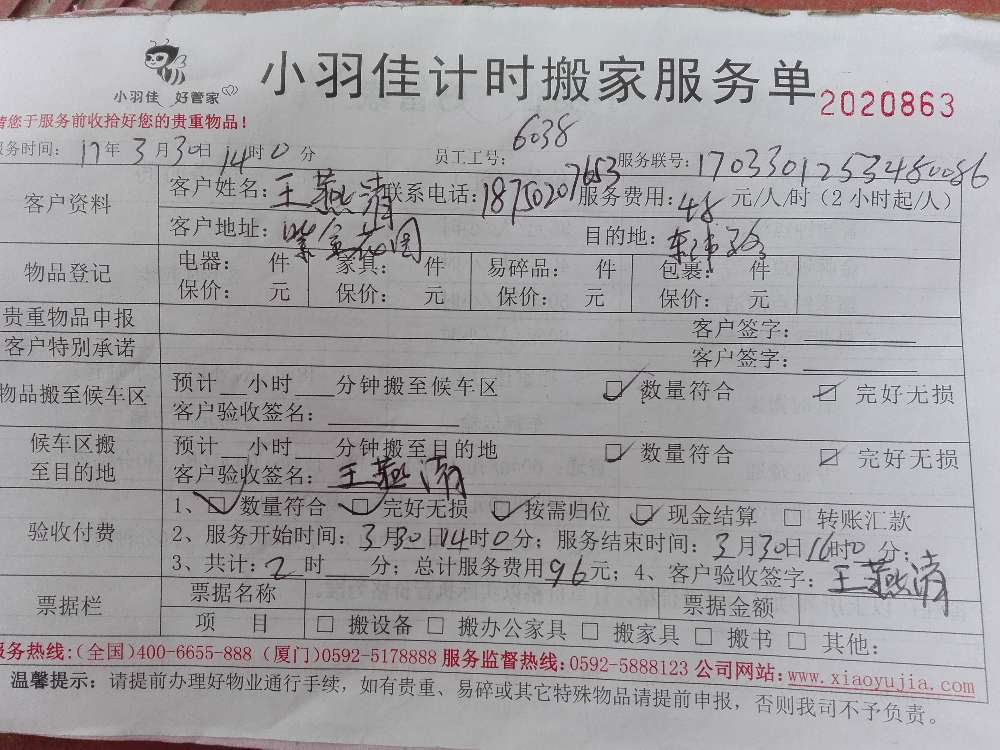 小羽佳 好管家
小羽佳计时搬家服务单 2020863
请您于服务前收拾好您的贵重物品！
服务时间：17年3月30日14时0分 员工工号：6038 服务联号：1703301253480086
客户资料 客户姓名：王燕清 联系电话：18750207653 服务费用：48元/人/时（2小时起/人）
客户地址：紫金花园 目的地：
物品登记 电器： 件 家具： 件 易碎品： 件 包裹： 件
保价： 元 保价： 元 保价： 元 保价： 元
贵重物品申报 客户签字：
客户特别承诺 客户签字：
物品搬至候车区 预计__小时___分钟搬至候车区 ☑数量符合 ☑完好无损
客户验收签名：
候车区搬至目的地 预计__小时___分钟搬至目的地 ☑数量符合 ☑完好无损
客户验收签名：王燕清
验收付费 1、☑数量符合 ☑完好无损 ☑按需归位 ☑现金结算 □转账汇款
2、服务开始时间：3月30日14时0分；服务结束时间：3月30日16时0分；
3、共计：2时___分；总计服务费用96元；4、客户验收签字：王燕清
票据栏 票据名称 票据金额
项 目 □搬设备 □搬办公家具 □搬家具 □搬书 □其他：
服务热线：(全国)400-6655-888（厦门)0592-5178888 服务监督热线：0592-5888123 公司网站：www.xiaoyujia.com
温馨提示：请提前办理好物业通行手续，如有贵重、易碎或其它特殊物品请提前申报，否则我司不予负责。